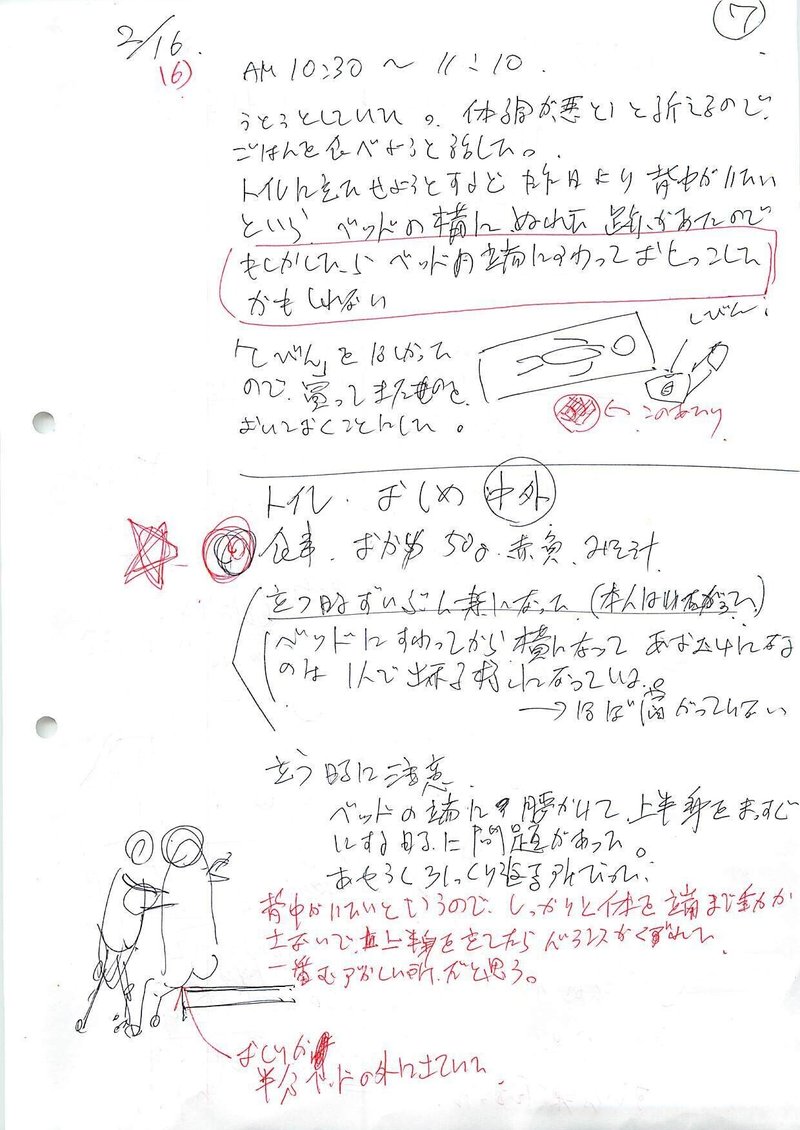 ⑦
2/16
16)
AM 10:30 〜 11:10.
うとうとしていた。体調が悪いと訴えるので、
ごはんを食べようと話した。
トイレに立たせようとすると昨日より背中がいたい
という。ベッドの横にぬれた跡があったので
もしかしたらベッドの端にすわっておしっこした
かもしれない
しびん!
「しびん」をほしがって
ので、買ってきたものを
おいておくことにした。
←このあたり
トイレ. おしめ 中外
食事. おかゆ 50g. 赤魚. みそ汁
立つ時ずいぶん楽になった
ベッドにすわってから横になって あおむけになる
のは 1人で出来る様になっている。
→ほぼ痛がっていない
立つ時に注意
ベッドの端に腰かけて、上半身をまっすぐ
にする時に問題があった。
背中がいたいというので、しっかりと体を端まで動か
さないで、上半身を立てたらバランスがくずれて
一番むずかしい所だと思う。
おしりが
半分ベッドの外に出ていた